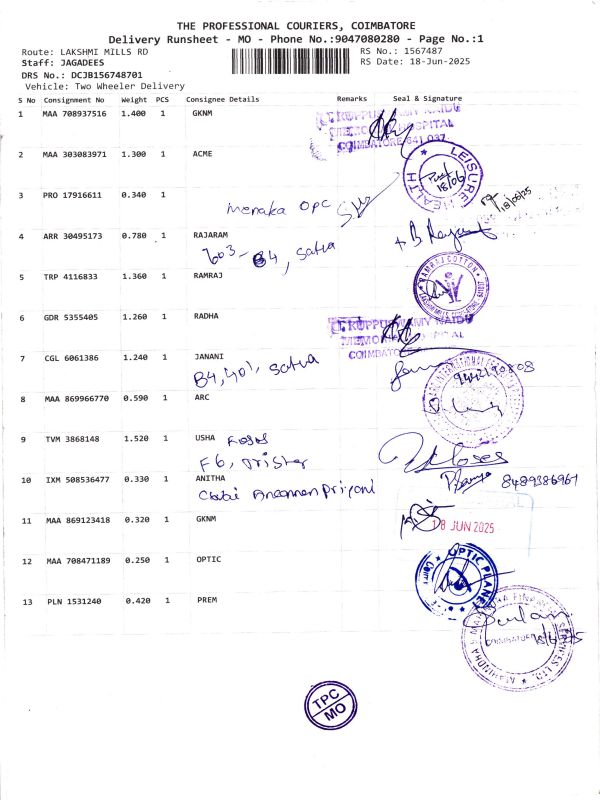 THE PROFESSIONAL COURIERS, COIMBATORE
Delivery Runsheet - MO - Phone No.:9047080280 - Page No.:1
Route: LAKSHMI MILLS RD
RS No.: 1567487
Staff: JAGADEES
RS Date: 18-Jun-2025
DRS No.: DCJB156748701
Vehicle: Two Wheeler Delivery
S No Consignment No Weight PCS Consignee Details Remarks Seal & Signature
1 MAA 708937516 1.400 1 GKNM
KUPPUSWAMY NAIDU
MEMORIAL HOSPITAL
COIMBATORE-641 037
2 MAA 303083971 1.300 1 ACME
LEISURE HEALTH
18/06
3 PRO 17916611 0.340 1
Menaka OPC
18/06/25
4 ARR 30495173 0.780 1 RAJARAM
603-B4, Satva
5 TRP 4116833 1.360 1 RAMRAJ
RAMRAJ COTTON
6 GDR 5355405 1.260 1 RADHA
KUPPUSWAMY NAIDU
MEMORIAL
COIMBATO
7 CGL 6061386 1.240 1 JANANI
B4,401, Satva
9442190808
8 MAA 869966770 0.590 1 ARC
9 TVM 3868148 1.520 1 USHA
F6, Trister
10 IXM 508536477 0.330 1 ANITHA
8489386961
11 MAA 869123418 0.320 1 GKNM
18 JUN 2025
12 MAA 708471189 0.250 1 OPTIC
OPTIC PLANET
13 PLN 1531240 0.420 1 PREM
COIMBATORE
TPC
MO